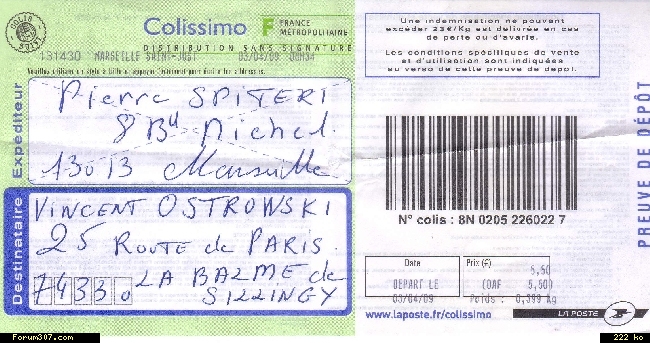 COLIS SUIVI
Colissimo F FRANCE MÉTROPOLITAINE
DISTRIBUTION SANS SIGNATURE
131430 MARSEILLE SAINT-JUST 03/04/09 00H34
Expéditeur
Pierre SPITERI
8 Bd Michel
13013 Marseille
Destinataire
VINCENT OSTROWSKI
25 ROUTE de PARIS.
74330 LA BALME de
SILLINGY
Une indemnisation ne pouvant
excéder 23€/Kg est délivrée en cas
de perte ou d'avarie.
Les conditions spécifiques de vente
et d'utilisation sont indiquées
au verso de cette preuve de dépôt.
N° colis : 8N 0205 226022 7
Date Prix (€)
5,50
DEPART LE (OAF 5,50)
03/04/09 Poids : 0,399 kg
www.laposte.fr/colissimo LA POSTE
PREUVE DE DÉPÔT
Forum307.com 222 ko